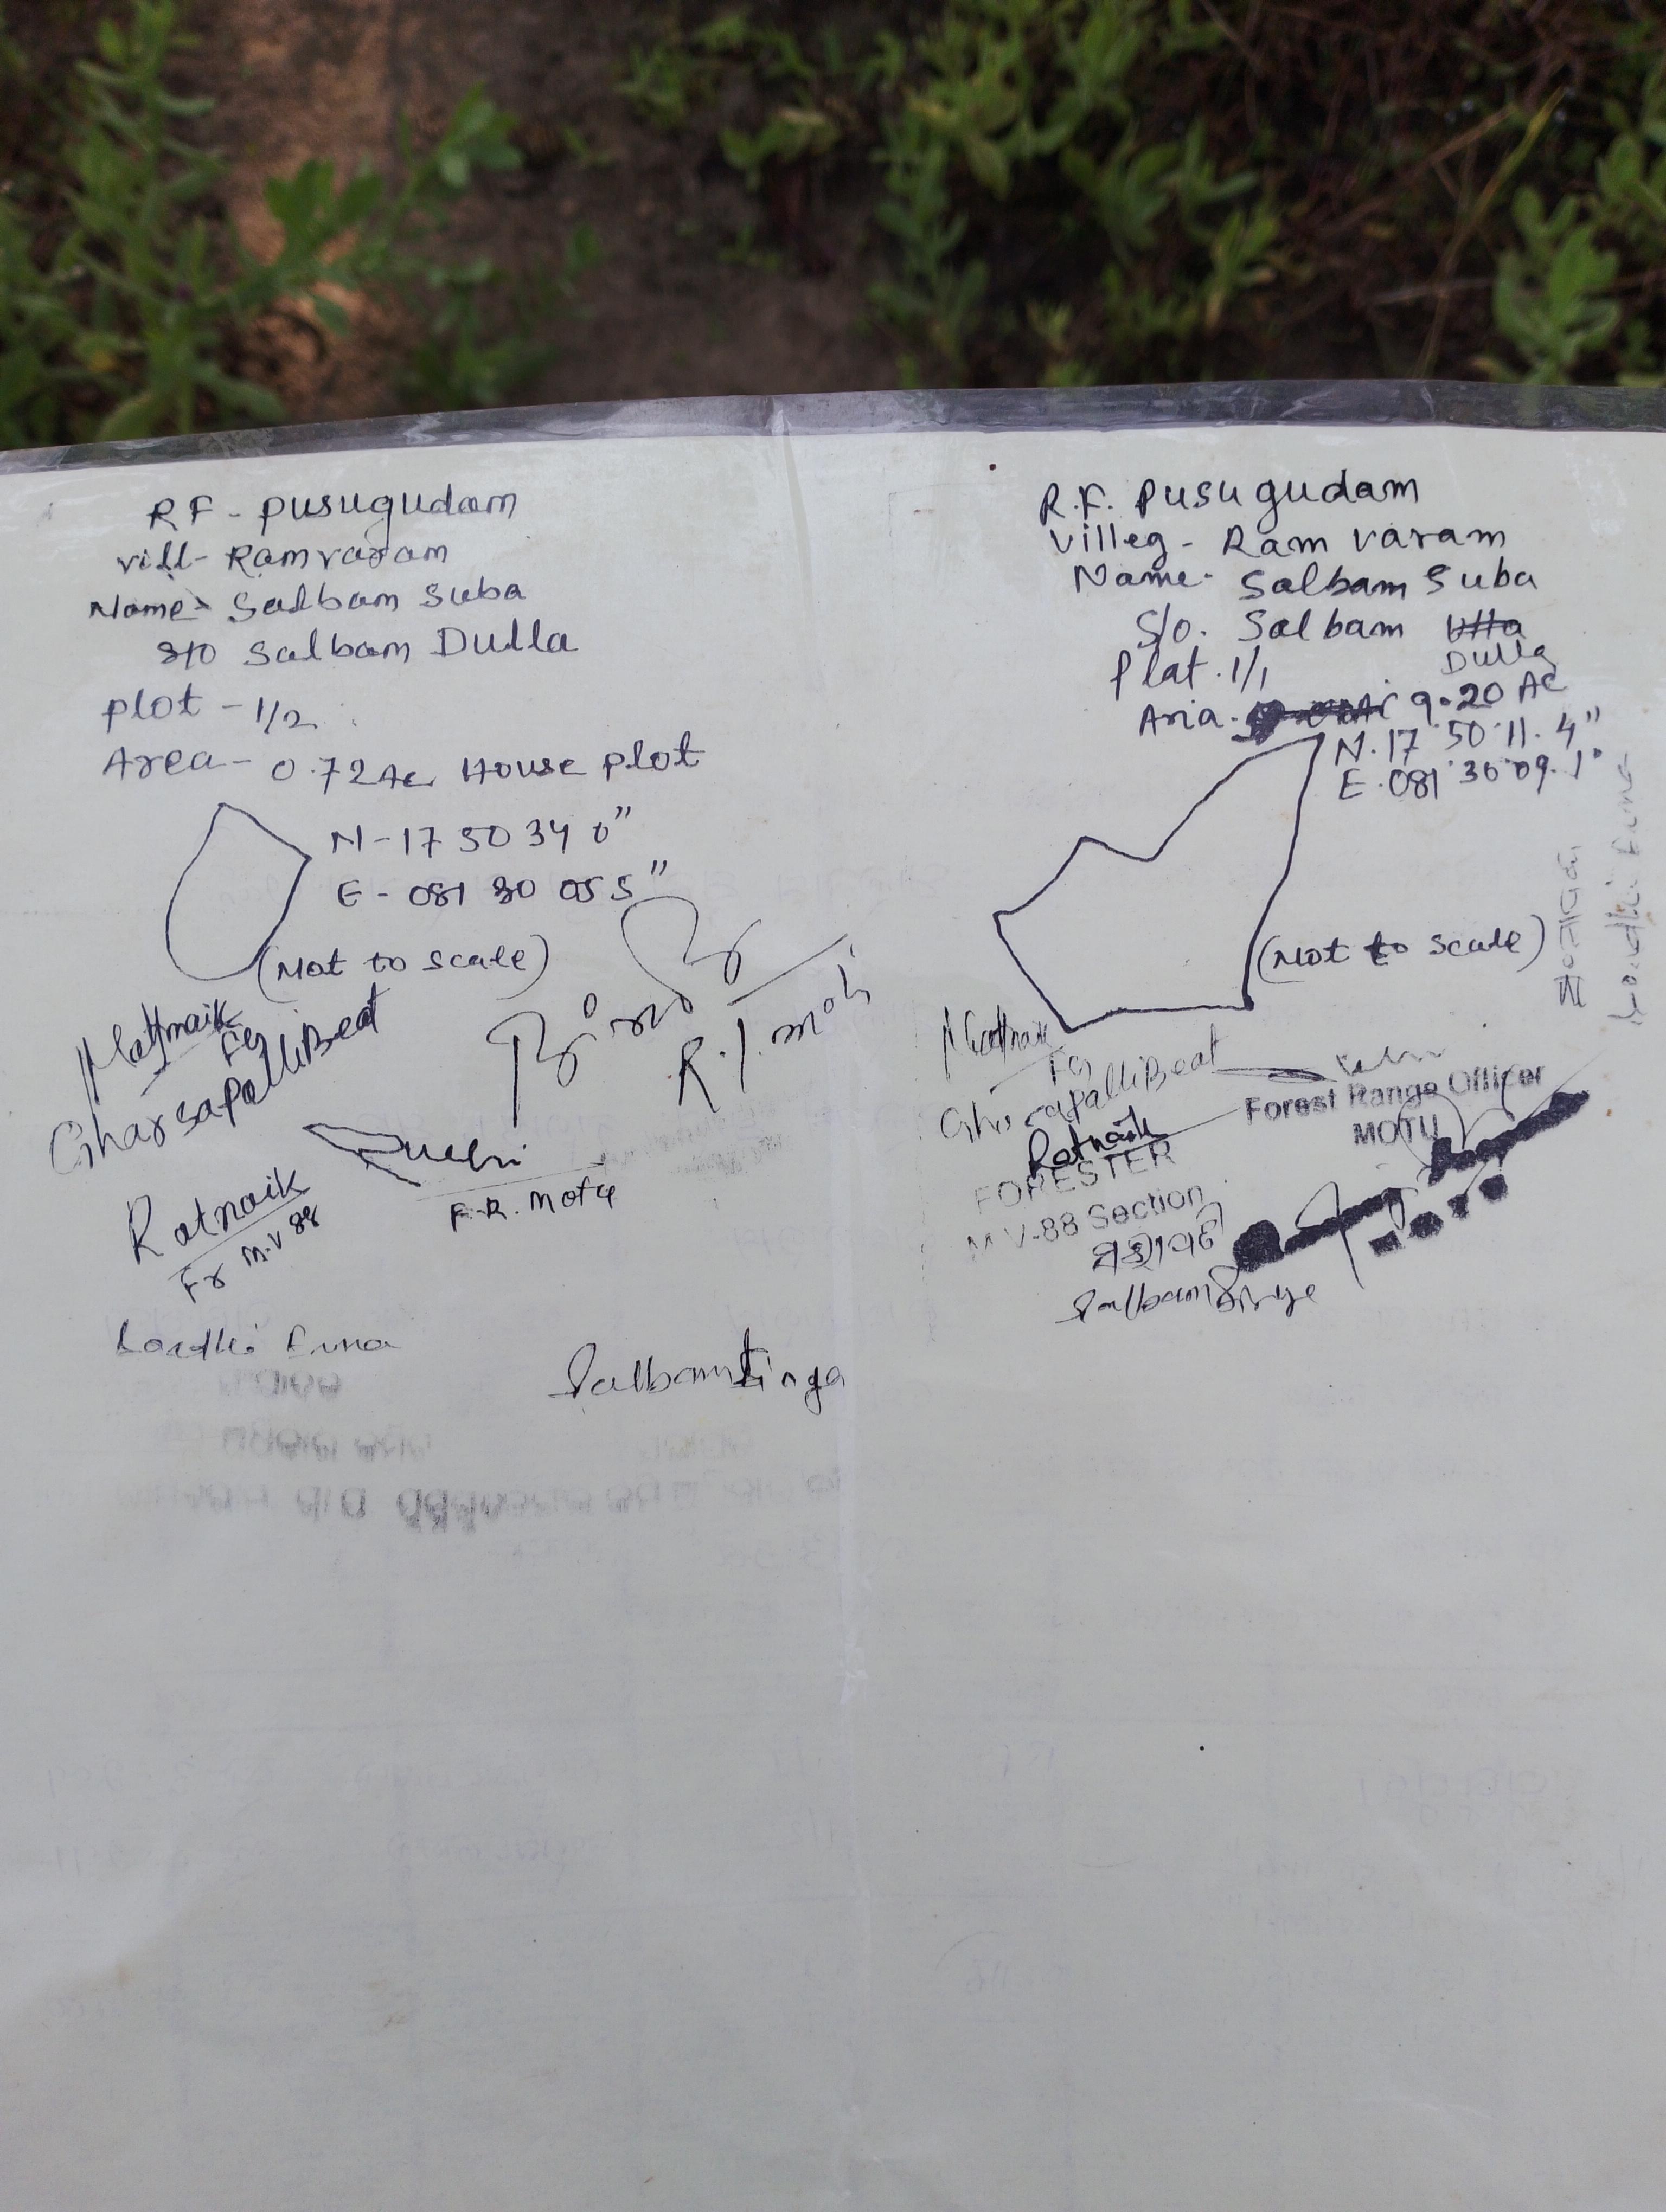 RF - Pusugudam
vill- Ramvaram
Name- Salbam Suba
S/O Salbam Dulla
Plot - 1/2
Area - 0.72 Ac House plot
N-17 50 34 0"
E - 081 30 05 5"
(Not to scale)
Fg
GharsapalliBeat
R.I. moti
Ratnaik
Fr M.V 88
F.R. Motu
Salbam Singa
R.F. Pusugudam
Villeg - Ram varam
Name - Salbam Suba
S/o. Salbam Utta
Dulla
Plat. 1/1
Aria. 9.20 Ac
N. 17 50 11. 4"
E. 081 30 09. 1"
(Not to scale)
Fg
GharsapalliBeat
Forest Range Officer
MOTU
Ratnaik
FORESTER
M V-88 Section
ସଭାପତି
Salbam Singa